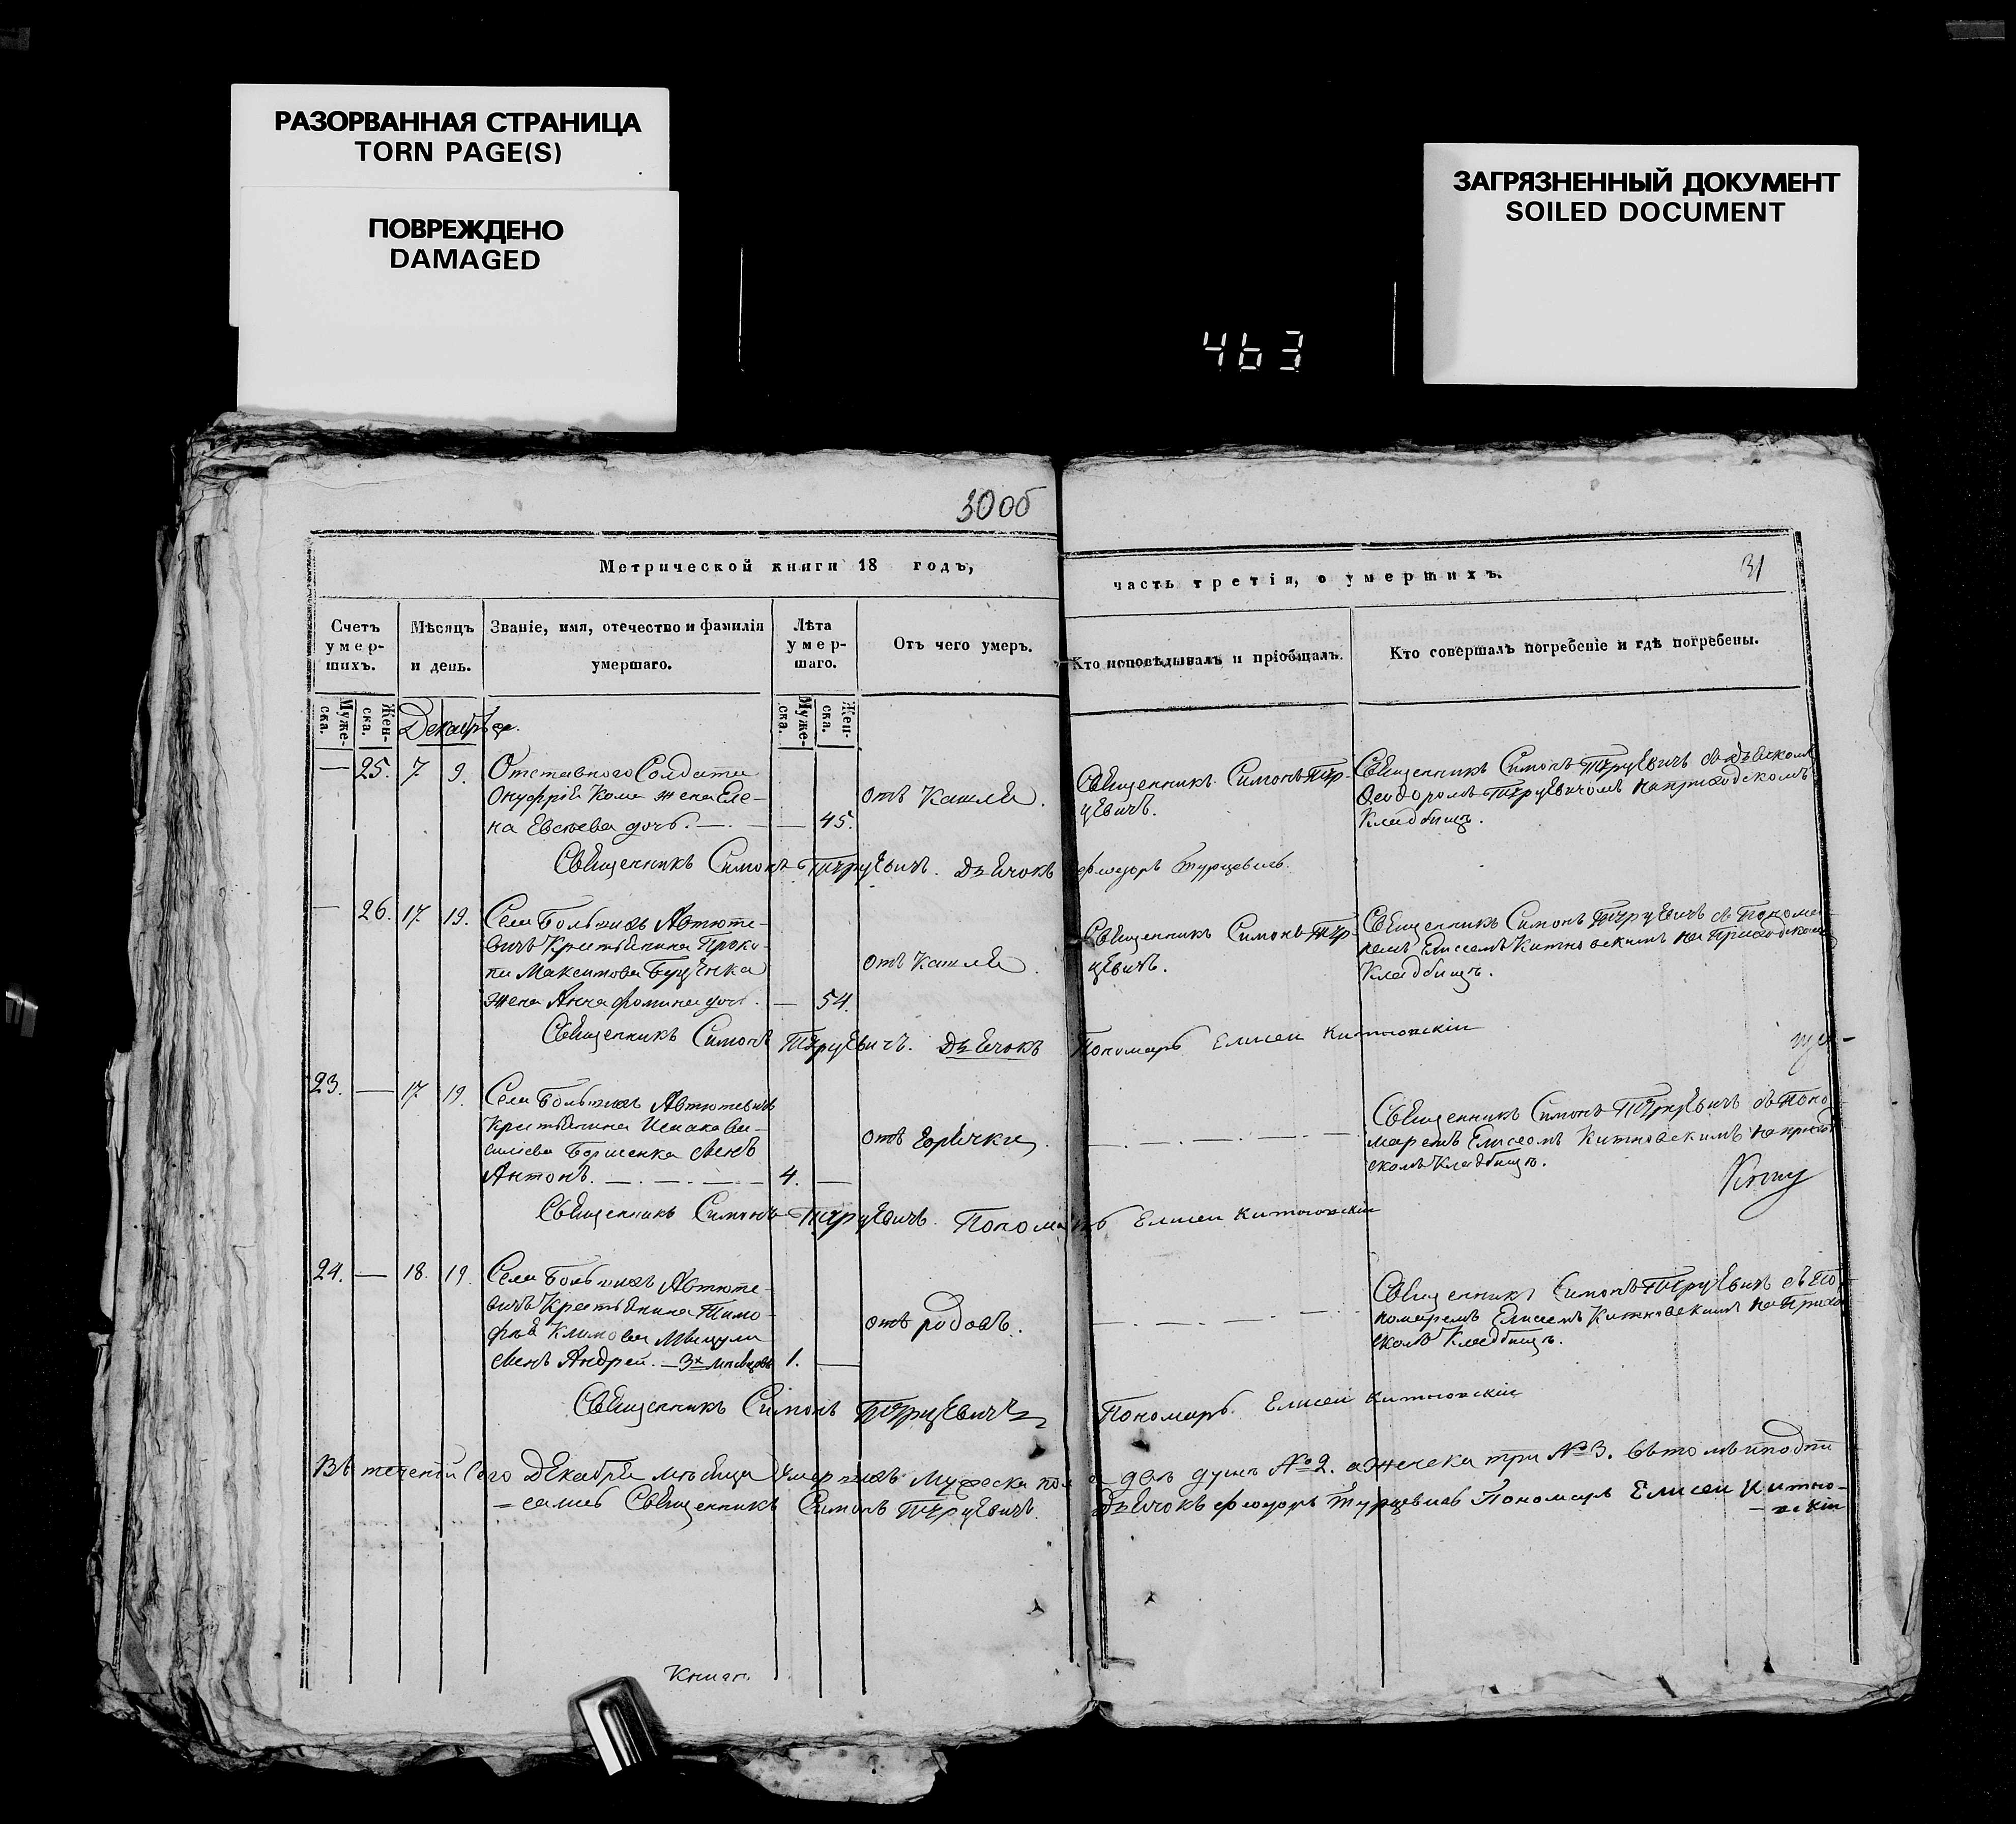 РАЗОРВАННАЯ СТРАНИЦА
TORN PAGE(S)
ПОВРЕЖДЕНО
DAMAGED
ЗАГРЯЗНЕННЫЙ ДОКУМЕНТ
SOILED DOCUMENT
463
30об
31
Метрической книги 18 годъ,
часть третія, о умершихъ.
Счетъ умер-
шихъ.
Мѣсяцъ
и день.
Званіе, имя, отечество и фамилія
умершаго.
Лѣта
умер-
шаго.
Отъ чего умеръ.
Кто исповѣдывалъ и пріобщалъ.
Кто совершалъ погребеніе и гдѣ погребены.
Муже-
ска.
Жен-
ска.
Муже-
ска.
Жен-
ска.
Декабрь
— 25. 7 9. Отставного Солдата
жена Еле-
на дочь. — — 45.
отъ Кашля.
Священникъ Симонъ Тур-
цевичъ.
Священникъ Симонъ Турцевичъ съ дьячкомъ
Ѳеодоромъ Турцевичомъ на приходскомъ
Кладбищѣ.
Священникъ Симонъ Турцевичъ. Дьячокъ Ѳеодоръ Турцевичъ
— 26. 17 19. Села Большихъ Автюте-
вичъ Крестьянина Проко-
пи Максимова
жена Анна Фомина дочь. — 54.
отъ Кашля.
Священникъ Симонъ Тур-
цевичъ.
Священникъ Симонъ Турцевичъ съ Понома-
ремъ Елисеемъ на Приходскомъ
Кладбищѣ.
Священникъ Симонъ Турцевичъ. Дьячокъ Пономарь Елисей
23. — 17 19. Села Большихъ Автютевичъ
Крестьянина Исаака Ва-
силіева сынъ
Антонъ. — 4. —
отъ горячки.
Священникъ Симонъ Турцевичъ съ Поно-
маремъ Елисеемъ на приход-
скомъ Кладбищѣ.
Священникъ Симонъ Турцевичъ. Пономарь Елисей
24. — 18. 19. Села Большихъ Автюте-
вичъ Крестьянина Тимо-
фея Климова
сынъ Андрей. — 3х мѣсяцовъ 1. —
отъ родовъ.
Священникъ Симонъ Турцевичъ съ По-
номаремъ Елисеемъ на Приход-
скомъ Кладбищѣ.
Священникъ Симонъ Турцевичъ Пономарь Елисей
Въ теченіи сего Декабря мѣсяца умершихъ Мужеска пола двѣ души № 2. а женска три № 3. въ томъ и подпи-
—сались Священникъ Симонъ Турцевичъ. Дьячокъ Ѳеодоръ Турцевичъ Пономарь Елисей